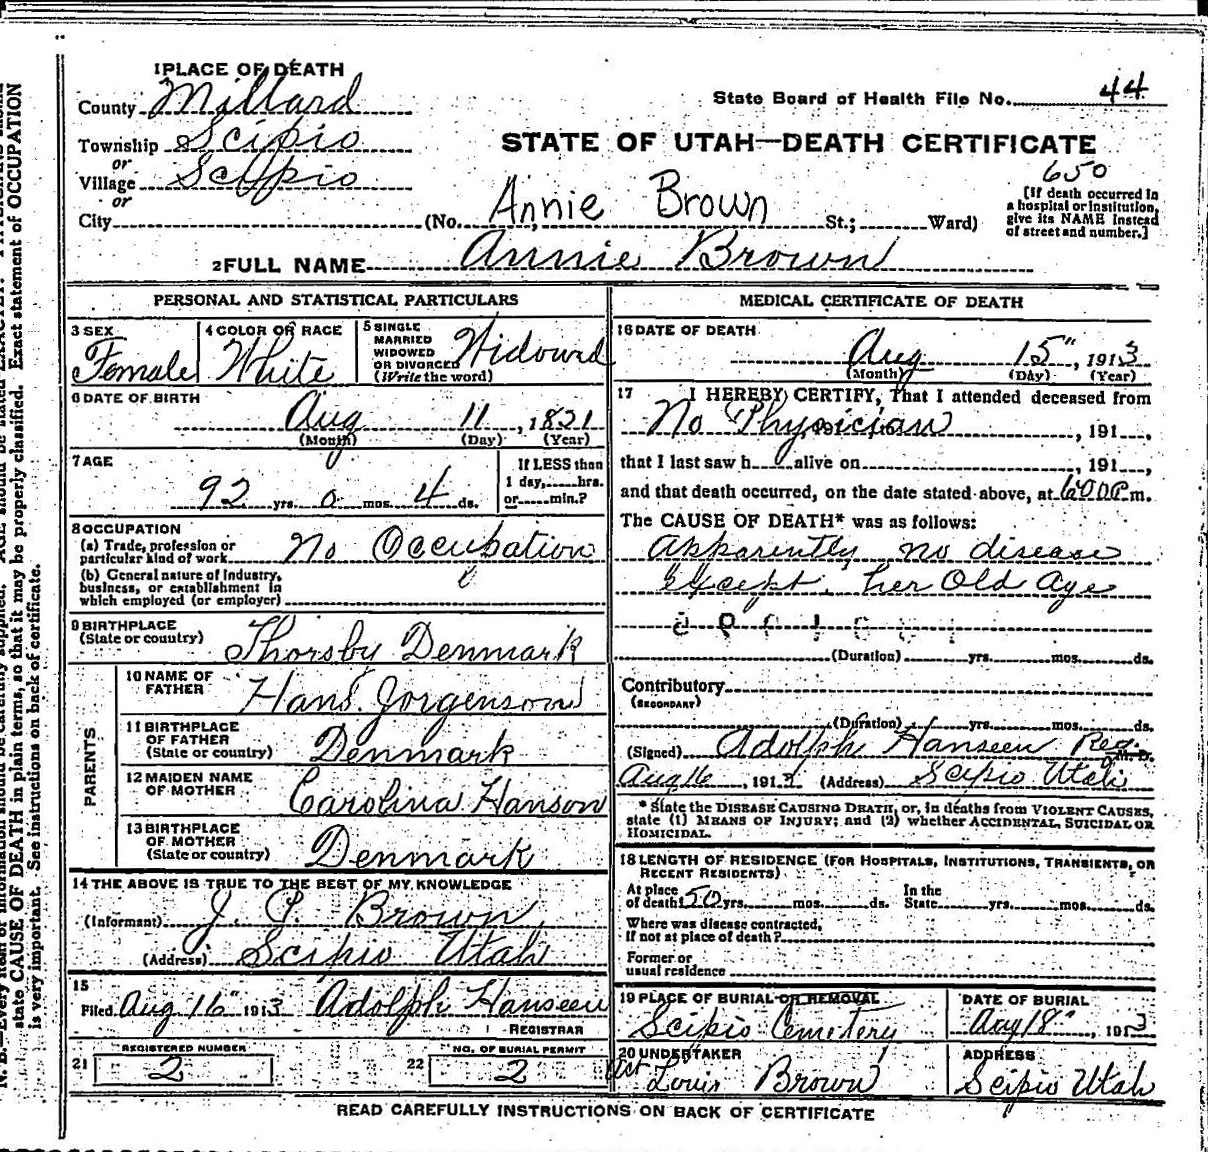 1 PLACE OF DEATH
County Millard
State Board of Health File No. 44
Township Scipio
or
STATE OF UTAH—DEATH CERTIFICATE
Village Scipio
or
650
City (No. Annie Brown St.; Ward)
[If death occurred in
a hospital or institution,
give its NAME instead
of street and number.]
2 FULL NAME Annie Brown
PERSONAL AND STATISTICAL PARTICULARS
3 SEX
Female
4 COLOR OR RACE
White
5 SINGLE
MARRIED
WIDOWED
OR DIVORCED
(Write the word)
Widowed
6 DATE OF BIRTH
Aug 11, 1821
(Month) (Day) (Year)
7 AGE
92 yrs. 0 mos. 4 ds.
If LESS than
1 day, hrs.
or min.?
8 OCCUPATION
(a) Trade, profession or
particular kind of work No Occupation
(b) General nature of Industry,
business, or establishment in
which employed (or employer)
9 BIRTHPLACE
(State or country) Thorsby Denmark
PARENTS
10 NAME OF
FATHER Hans Jorgenson
11 BIRTHPLACE
OF FATHER
(State or country) Denmark
12 MAIDEN NAME
OF MOTHER Carolina Hanson
13 BIRTHPLACE
OF MOTHER
(State or country) Denmark
14 THE ABOVE IS TRUE TO THE BEST OF MY KNOWLEDGE
(Informant) J. Brown
(Address) Scipio Utah
15
Filed Aug 16" 1913 Adolph Hanseen
REGISTRAR
21 REGISTERED NUMBER
2
22 NO. OF BURIAL PERMIT
2
MEDICAL CERTIFICATE OF DEATH
16 DATE OF DEATH
Aug 15", 1913
(Month) (Day) (Year)
17 I HEREBY CERTIFY, That I attended deceased from
No Physician, 191
that I last saw h alive on , 191
and that death occurred, on the date stated above, at 6:00 P.m.
The CAUSE OF DEATH* was as follows:
Apparently no disease
except her Old Age
(Duration) yrs. mos. ds.
Contributory
(SECONDARY)
(Duration) yrs. mos. ds.
(Signed) Adolph Hanseen Reg. M. D.
Aug 16, 1913 (Address) Scipio Utah
* State the DISEASE CAUSING DEATH, or, in deaths from VIOLENT CAUSES,
state (1) MEANS OF INJURY; and (2) whether ACCIDENTAL, SUICIDAL OR
HOMICIDAL.
18 LENGTH OF RESIDENCE (FOR HOSPITALS, INSTITUTIONS, TRANSIENTS, OR
RECENT RESIDENTS)
At place
of death 50 yrs. mos. ds.
In the
State yrs. mos. ds.
Where was disease contracted,
if not at place of death?
Former or
usual residence
19 PLACE OF BURIAL OR REMOVAL
Scipio Cemetery
DATE OF BURIAL
Aug 18", 1913
20 UNDERTAKER
Act Louis Brown
ADDRESS
Scipio Utah
READ CAREFULLY INSTRUCTIONS ON BACK OF CERTIFICATE
state CAUSE OF DEATH in plain terms, so that it may be properly classified. Exact statement of OCCUPATION
is very important. See instructions on back of certificate.